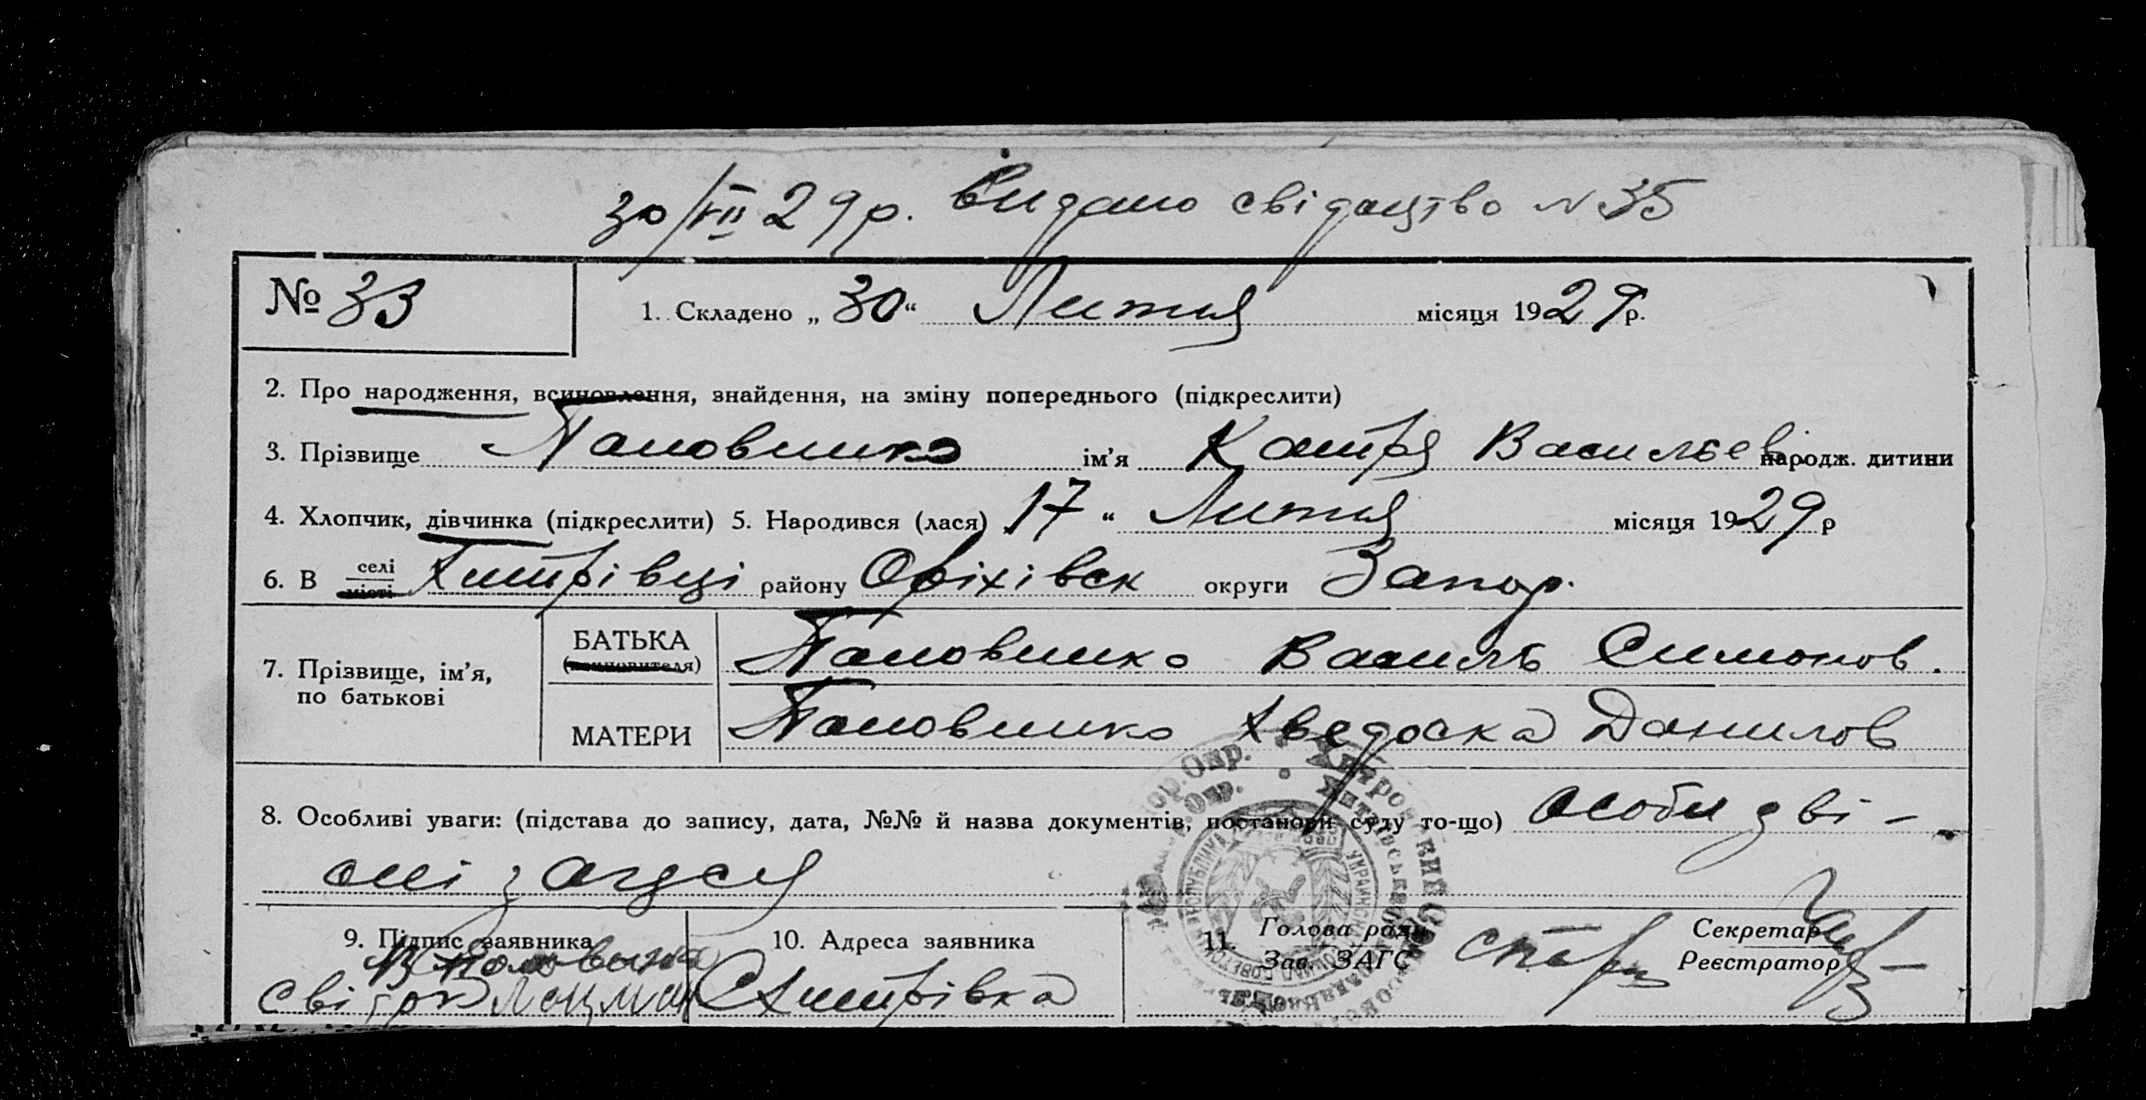 30/VII 29 р. Видано свідоцтво N 35
№ 33
1. Складено „ 30 “ Липня місяця 1929 р.
2. Про народження, всиновлення, знайдення, на зміну попереднього (підкреслити)
3. Прізвище Половинко ім’я Катря Васильев народж. дитини
4. Хлопчик, дівчинка (підкреслити) 5. Народився (лася) 17 “ Липня місяця 1929 р
6. В селі місті Хитрівці району Оріхівск округи Запор.
7. Прізвище, ім’я, по батькові
БАТЬКА Половинко Василь Симонов.
МАТЕРИ Половинко Хведоска Данилов
8. Особливі уваги: (підстава до запису, дата, №№ й назва документів, постанови суду то-що) особи зві-
9. Підпис заявника
10. Адреса заявника
С Хитрівка
11. Голова ради
Зав. ЗАГС
Секретар
Реєстратор